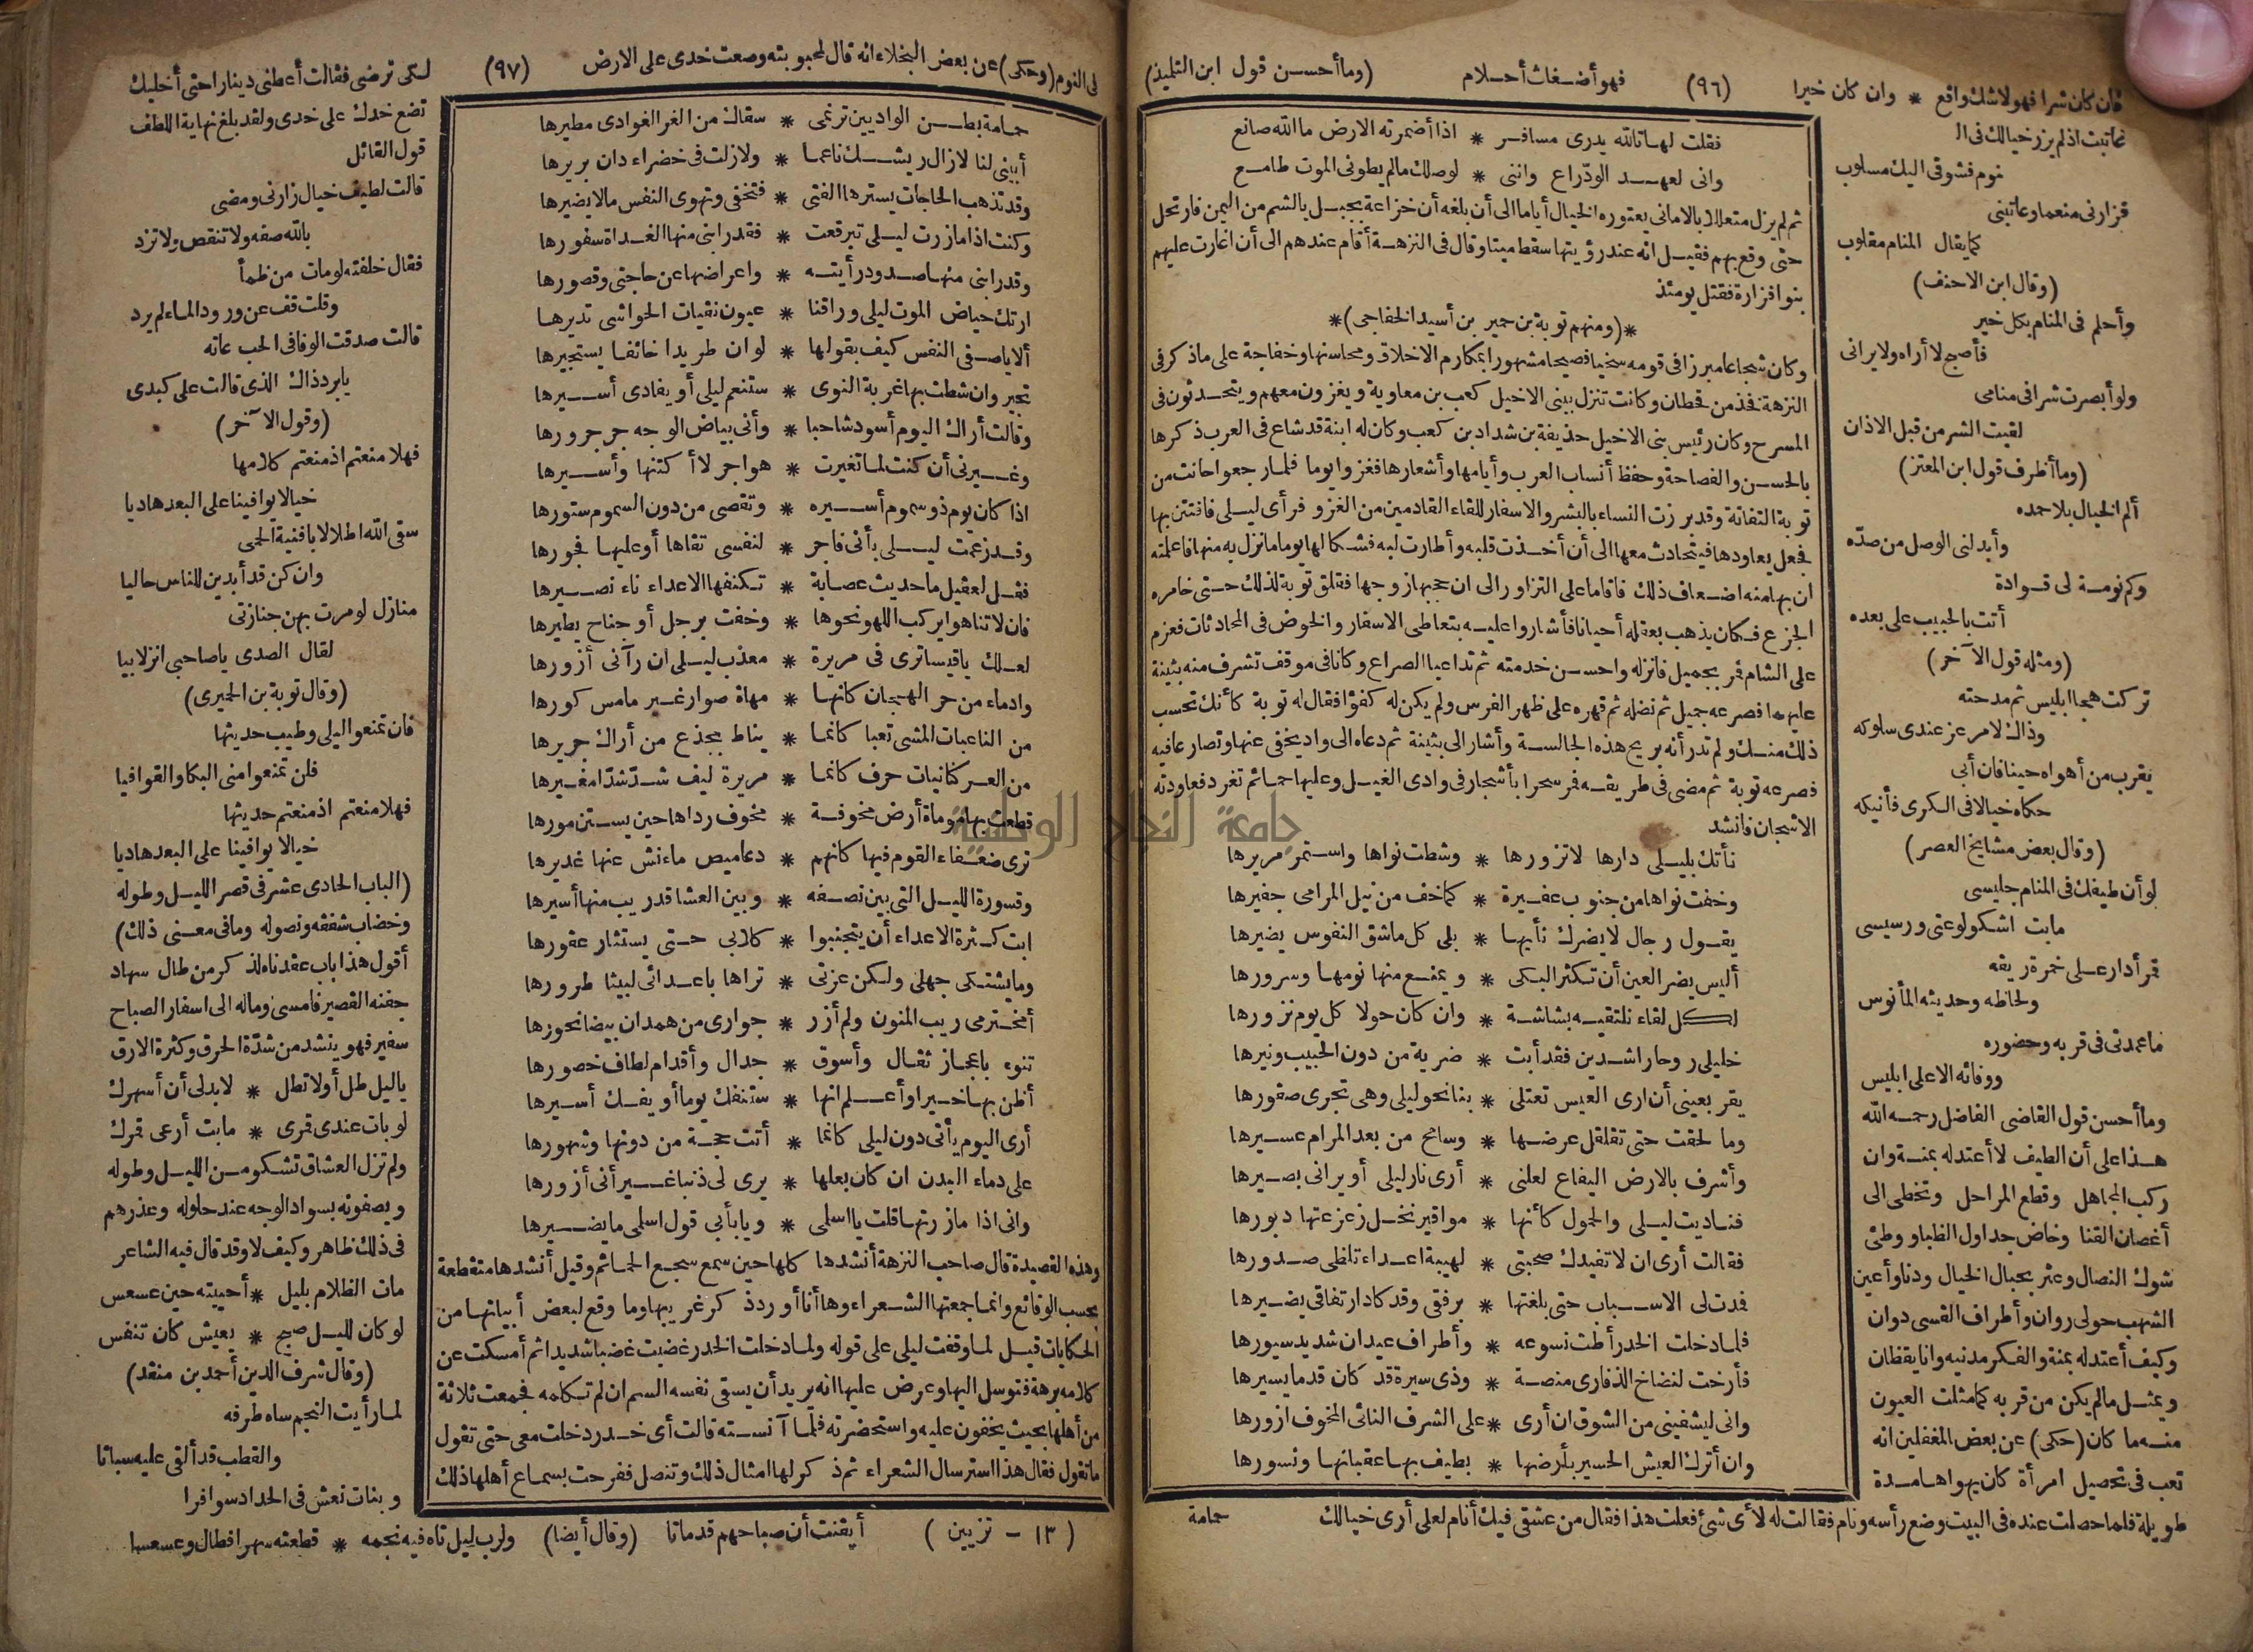 فان كان شرا فهو لاشك واقع * وان كان خيرا (٩٦) فهو أضغاث أحلام (وما أحسن قول ابن التلميذ)
عاتبت اذ لم يزر خيالك فى ال
نوم فشوقى اليك مسلوب
فزارنى منعما وعاتبنى
كما يقال المنام مقلوب
(وقال ابن الاحنف)
وأحلم فى المنام بكل خير
فأصبح لا أراه ولا يرانى
ولو أبصرت شرا فى منامى
لقيت الشر من قبل الاذان
(وما أظرف قول ابن المعتز)
ألم الخيال بلا حمده
وأبدلنى الوصل من صدّه
وكم نومة لى قوادة
أتت بالحبيب على بعده
(ومثله قول الآخر)
تركت هجا ابليس ثم مدحته
وذاك لامر عز عندى سلوكه
يقرب من أهواه حينا فان أبى
حكاه خيالا فى الكرى فأنيكه
(وقال بعض مشايخ العصر)
لو أن طيفك فى المنام جليسى
مابت اشكو لوعتى ورسيسى
قمر أدار على خمرة ريقه
ولحاظه وحديثه المأنوس
ما عمدتى فى قربه وحضوره
ووفائه الا على ابليس
وما أحسن قول القاضى الفاضل رحمه الله
هذا على أن الطيف لا أعتد له بمنة وان
ركب المجاهل وقطع المراحل وتخطى الى
أغصان القنا وخاض جداول الظبا ووطئ
شوك النصال وعثر بحبال الخيال ودنا وأعين
الشهب حولى روان وأطراف القسى دوان
وكيف أعتد له بمنة والفكر مدنيه وانا يقظان
ويمثل مالم يكن من قربه كما مثلت العيون
منه ما كان (حكى) عن بعض المغفلين انه
تعب فى تحصيل امرأة كان يهواها مدة
طويلة فلما حصلت عنده فى البيت وضع رأسه ونام فقالت له لأى شئ فعلت هذا فقال من عشقى فيك أنام لعلى أرى خيالك
فقلت لها تالله يدرى مسافر * اذا أضمرته الارض ما الله صانع
وانى لعهد الودّ راع واننى * لوصلك مالم يطونى الموت طامع
ثم لم يزل متعللا بالامانى يعتوره الخيال أياما الى أن بلغه أن خزاعة بجبل بالشم من اليمن فارتحل
حتى وقع بهم فقيل انه عند رؤيتها سقط ميتا وقال فى النزهة أقام عندهم الى أن اغارت عليهم
بنوا فزارة فقتل يومئذ
*(ومنهم توبة بن حمير بن أسيد الخفاجى)*
وكان شجاعا مبرزا فى قومه سخيا فصيحا مشهورا بمكارم الاخلاق ومحاسنها وخفاجة على ماذكر فى
النزهة فخذ من قحطان وكانت تنزل ببنى الاخيل كعب بن معاوية ويغزون معهم ويتحدثون فى
المسرح وكان رئيس بنى الاخيل حذيفة بن شداد بن كعب وكان له ابنة قد شاع فى العرب ذكرها
بالحسن والفصاحة وحفظ أنساب العرب وأيامها وأشعارها فغزوا يوما فلما رجعوا حانت من
توبة التفاتة وقد برزت النساء بالبشر والاسفار للقاء القادمين من الغزو فرأى ليلى فافتتن بها
فجعل يعاودها فيتحادث معها الى أن أخذت قلبه وأطارت لبه فشكا لها يوما ما نزل به منها فاعلمته
ان بها منه اضعاف ذلك فاقاما على التزاور الى ان حجبها زوجها فقلق توبة لذلك حتى خامره
الجزع فكان يذهب بعقله أحيانا فأشاروا عليه بتعاطى الاسفار والخوض فى المحادثات فعزم
على الشام فمر بجميل فانزله واحسن خدمته ثم تداعيا الصراع وكانا فى موقف تشرف منه بثينة
عليهما فصرعه جميل ثم نضله ثم قهره على ظهر الفرس ولم يكن له كفؤا فقال له توبة كأنك تحسب
ذلك منك ولم تدر أنه بريح هذه الجالسة وأشار الى بثينة ثم دعاه الى واد يخفى عنها وتصارعا فيه
فصرعه توبة ثم مضى فى طريقه فمر سحرا بأشجار فى وادى الغيل وعليها حمائم تغرد فعاودته
الاشجان فانشد
نأتك بليلى دارها لا تزورها * وشطت نواها واستمر مريرها
وخفت نواها من جنوب عفيرة * كما خف من نيل المرامى جفيرها
يقول رجال لا يضرك نأيها * بلى كل ماشق النفوس يضيرها
أليس يضر العين أن تكثر البكى * ويمنع منها نومها وسرورها
لكل لقاء نلتقيه بشاشة * وان كان حولا كل يوم نزورها
خليلى روحا راشدين فقد أبت * ضرية من دون الحبيب ونيرها
يقر بعينى أن ارى العيس تعتلى * بنا نحو ليلى وهى تجرى صقورها
وما لحقت حتى تقلقل عرضها * وسامح من بعد المرام عسيرها
وأشرف بالارض اليفاع لعلنى * أرى نار ليلى أو يرانى بصيرها
فناديت ليلى والحمول كأنها * مواقير نخل زعزعتها دبورها
فقالت أرى ان لا تفيدك صحبتى * لهيبة اعداء تلظى صدورها
فمدت لى الاسباب حتى بلغتها * برفقى وقد كاد ارتفاقى يضيرها
فلما دخلت الخدر أطت نسوعه * وأطراف عيدان شديد سيورها
فأرخت لنضاخ الذفارى منصة * وذى سيرة قد كان قدما يسيرها
وانى ليشفينى من الشوق ان أرى * على الشرف النائى المخوف ازورها
وان أترك العيش الحسير بأرضها * يطيف بها عقبانها ونسورها
حمامة
لى النوم (وحكى) عن بعض البخلاء انه قال لمحبوبته وضعت خدى على الارض (٩٧) لكى ترضى فقالت أعطنى دينارا حتى أخليك
حمامة بطن الواديين ترنمى * سقاك من الغر الغوادى مطيرها
أبينى لنا لازال ريشك ناعما * ولازلت فى خضراء دان بريرها
وقد تذهب الحاجات يسترها الفتى * فتخفى وتهوى النفس مالا يضيرها
وكنت اذا ما زرت ليلى تبرقعت * فقد رابنى منها الغداة سفورها
وقد رابنى منها صدود رأيته * واعراضها عن حاجتى وقصورها
ارتك حياض الموت ليلى وراقنا * عيون نقيات الحواشى تديرها
ألا ياصفى النفس كيف بقولها * لو ان طريدا خائفا يستجيرها
تجير وان شطت بها غربة النوى * ستنعم ليلى أو يفادى أسيرها
وقالت أراك اليوم أسود شاحبا * وأنى بياض الوجه حر حرورها
وغيرنى أن كنت لما تغيرت * هواجر لا أكتنها وأسيرها
اذا كان يوم ذو سموم أسيره * وتقصى من دون السموم ستورها
وقد زعمت ليلى بأنى فاجر * لنفسى تقاها أو عليها فجورها
فقل لعقيل ماحديث عصابة * تكنفها الاعداء ناء نصيرها
فان لا تناهوا يركب اللهو نحوها * وخفت برجل أو جناح يطيرها
لعلك ياقيسا ترى فى مريرة * معذب ليلى ان رآنى أزورها
وادماء من حر الهجان كانها * مهاة صوار غير مامس كورها
من الناعبات المشى تعبا كانما * يناط بجذع من أراك جريرها
من العركنانيات حرف كانما * مريرة ليف شدّ شدّا مغيرها
قطعت بها موماة أرض مخوفة * مخوف رداها حين يستن مورها
ترى ضعفاء القوم فيها كانهم * دعاميص ماء نش عنها غديرها
وقسورة الليل التى بين نصفه * وبين العشا قد ريب منها أسيرها
ابت كثرة الاعداء أن يتجنبوا * كلابى حتى يستثار عقورها
وما يشتكى جهلى ولكن عزتى * تراها باعدائى لبيثا طرورها
أمخترمى ريب المنون ولم أزر * جوارى من همدان بيضا نحورها
تنوء باعجاز ثقال وأسوق * جدال وأقدام لطاف خصورها
أظن بها خيرا وأعلم انها * ستنفك يوما أو يفك أسيرها
أرى اليوم يأتى دون ليلى كانما * أتت حجة من دونها وشهورها
على دماء البدن ان كان بعلها * يرى لى ذنبا غير أنى أزورها
وانى اذا ما زرتها قلت يا اسلمى * ويا بأبى قول اسلمى ما يضيرها
وهذه القصيدة قال صاحب النزهة أنشدها كلها حين سمع سجع الحمائم وقيل أنشدها متقطعة
بحسب الوقائع وانما جمعتها الشعراء وها أنا أورد ذكر غريبها وما وقع لبعض أبياتها من
الحكايات قيل لما وقفت ليلى على قوله ولما دخلت الخدر غضبت غضبا شديدا ثم أمسكت عن
كلامه برهة فتوسل اليها وعرض عليها انه يريد أن يسقى نفسه السم ان لم تكلمه فجمعت ثلاثة
من أهلها بحيث يخفون عليه واستحضرته فلما آنسته قالت أى خدر دخلت معى حتى تقول
ما تقول فقال هذا استرسال الشعراء ثم ذكر لها امثال ذلك وتنصل ففرحت بسماع أهلها ذلك
تضع خدك على خدى ولقد بلغ نهاية اللطف
قول القائل
قالت لطيف خيال زارنى ومضى
بالله صفه ولا تنقص ولا تزد
فقال خلفته لومات من ظمأ
وقلت قف عن ورود الماء لم يرد
قالت صدقت الوفا فى الحب عاته
يابرد ذاك الذى قالت على كبدى
(وقول الآخر)
فهلا منعتم اذ منعتم كلامها
خيالا يوافينا على البعد هاديا
سقى الله اطلالا بافنية الحمى
وان كن قد أبدين للناس حاليا
منازل لو مرت بهن جنازتى
لقال الصدى ياصاحبى انزلا بيا
(وقال توبة بن الحميرى)
فان تمنعوا ليلى وطيب حديثها
فلن تمنعوا منى البكا والقوافيا
فهلا منعتم اذ منعتم حديثها
خيالا يوافينا على البعد هاديا
(الباب الحادى عشر فى قصر الليل وطوله
وخضاب شفقه ونصوله وما فى معنى ذلك)
أقول هذا باب عقدناه لذكر من طال سهاد
جفنه القصير فامسى وماله الى اسفار الصباح
سفير فهو ينشد من شدّة الحرق وكثرة الارق
ياليل طل أولا تطل * لابد لى أن أسهرك
لو بات عندى قمرى * مابت أرعى قمرك
ولم تزل العشاق تشكو من الليل وطوله
ويصفونه بسواد الوجه عند حلوله وعذرهم
فى ذلك ظاهر وكيف لا وقد قال فيه الشاعر
مات الظلام بليل * أحييته حين عسعس
لو كان لليل صبح * يعيش كان تنفس
(وقال شرف الدين أحمد بن منقذ)
لما رأيت النجم ساه طرفه
والقطب قد ألقى عليه سباتا
وبنات نعش فى الحداد سوافرا
(١٣ - تزيين) أيقنت أن صباحهم قد ماتا (وقال أيضا) ولرب ليل تاه فيه نجمه * قطعته سهرا فطال وعسعسا
جامعة النجاح الوطنية